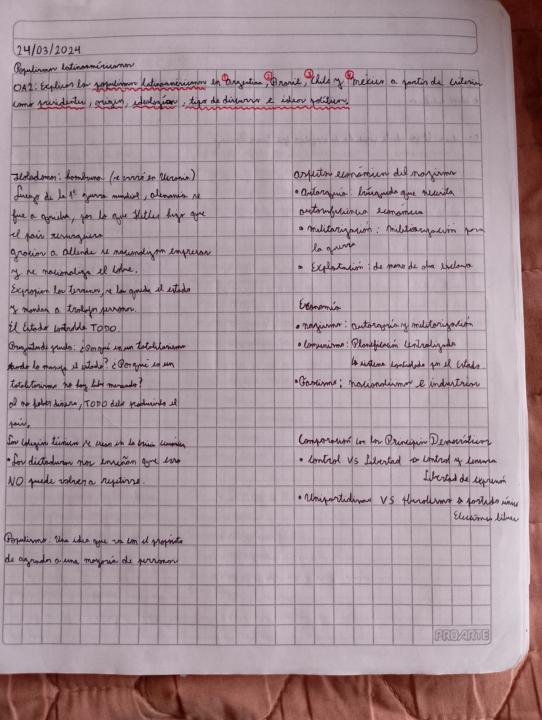 24/03/2024
Populismos latinoamericanos
OA2: Explicar los populismos latinoamericanos en ① Argentina, ② Brasil, ③ Chile y ④ México a partir de criterios
como presidentes, origen, ideologías, tipo de discurso e ideas políticas.
Holodomor: hambruna (se cerró en Ucrania)
Luego de la 1° guerra mundial, alemania se
fue a quiebra, por lo que Hitler hizo que
el país resurgiera
gracias a Allende se nacionalizan empresas
y se nacionaliza el cobre.
Expropian los terrenos, se los queda el estado
y mandan a trabajar personas.
El Estado controla TODO
¿Por qué en un totalitarismo
todo lo maneja el estado? ¿Por qué en un
totalitarismo no hay libre mercado?
al no haber dinero, TODO debe producirlo el
país.
Los colegios técnicos se crean en la
• Las dictaduras nos enseñan que eso
NO puede volver a repetirse.
Populismo: Una idea que va con el propósito
de agradar a una mayoría de personas
aspectos económicos del nazismo
• autarquía: búsqueda que necesita
autosuficiencia económica
• militarización: militarización por
la guerra
• Explotación: de mano de obra esclava
Economía
• nazismo: autarquía y militarización
• comunismo: Planificación centralizada
↳ sistema controlado por el Estado
• Fascismo: nacionalismo e industrias
Comparación con los Principios Democráticos
• Control VS Libertad → control y censura
Libertad de expresión
• Unipartidismo VS Pluralismo → partido único
Elecciones libres
PROARTE